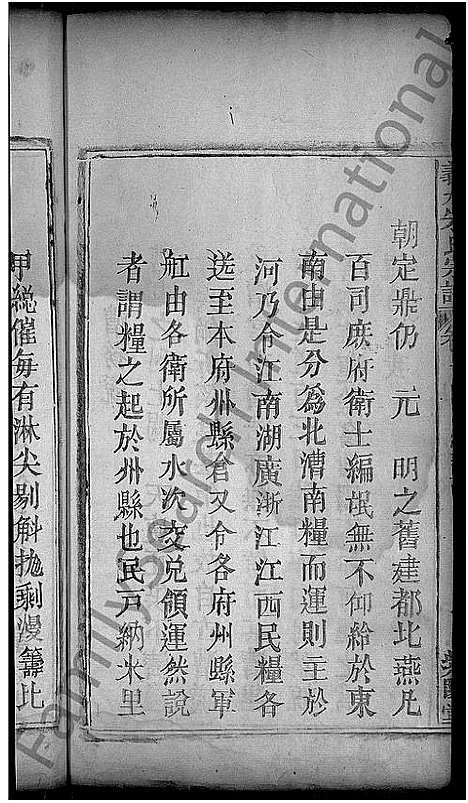 朝定鼎仍　元　明之舊建都北燕凡
百司庶府衛士編氓無不仰給於東
南由是分爲北漕南糧而運則主於
河乃令江南湖廣浙江江西民糧各
送至本府州縣倉又令各府州縣軍
缸由各衛所屬水次交兌領運然說
者謂糧之起於州縣也民戸納米里
甲総催每有淋尖剔斛拋剩漫籌比
FamilySearch International